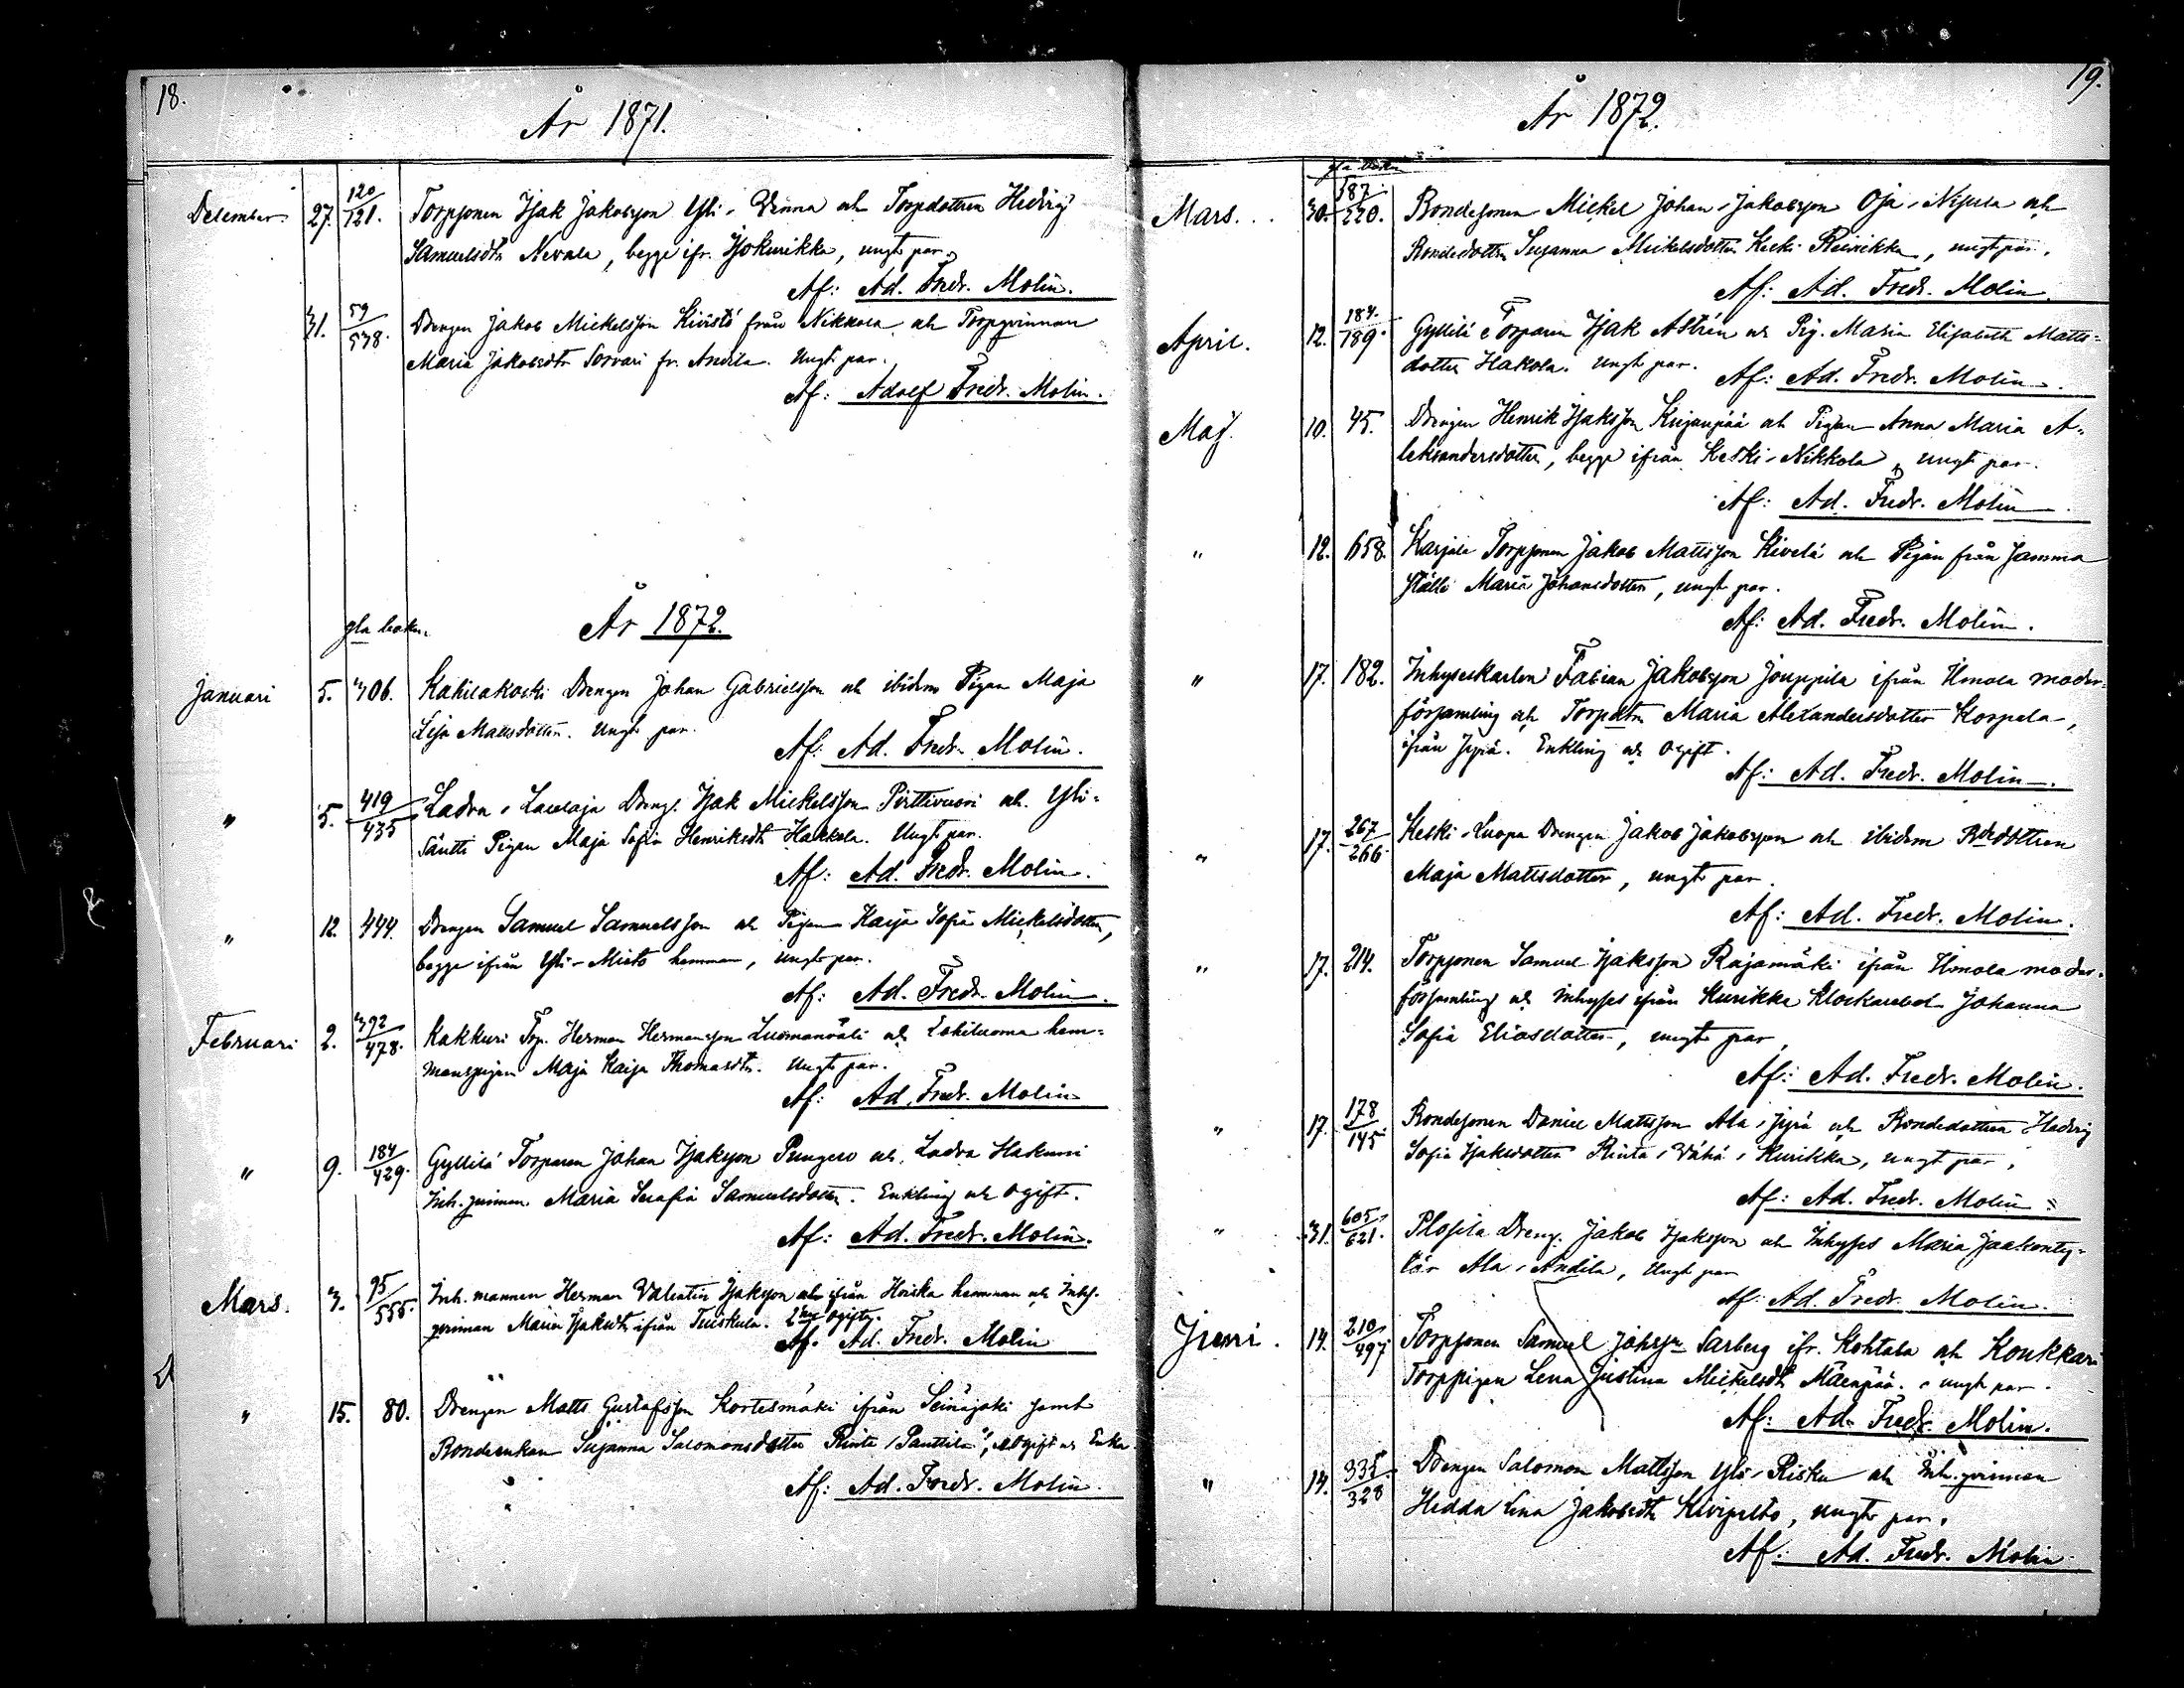 18.
År 1871.
December. 27. 120/121. Torpsonen Isak Jakobsson Yli-Venna och Torpdottren Hedvig
Samuelsdtr Nevala, begge ifr. Iljokurikka, ungt par.
Af: Ad. Fredr. Molin.
31. 59/538. Drengen Jakob Mickelsson Kivistö från Nikkola och Torpqvinnan
Maria Jakobsdtr Sorvari fr. Andila. Ungt par.
Af: Adolf Fredr. Molin.
gla boken År 1872.
Januari 5. 306. Kahilakoski Drengen Johan Gabrielsson och ibidem Pigan Maja
Lisa Mattsdotter. Ungt par.
Af: Ad. Fredr. Molin.
" 5. 419/435 Ladva-Laulaja Dreng. Isak Mickelsson Pirttivuori och Yli-
Säntti Pigan Maja Sofia Henriksdtr Hakkola. Ungt par.
Af: Ad. Fredr. Molin.
" 12. 444. Drengen Samuel Samuelsson och Pigan Kaija Sofia Mickelsdotter,
begge ifrån Yli-Mieto hemman, ungt par.
Af: Ad. Fredr. Molin.
Februari 2. 392/478. Kakkuri Trp. Herman Hermansson Luomanväli och Lohiluoma hem-
manspigan Maja Kaija Thomasdtr. Ungt par.
Af: Ad. Fredr. Molin
" 9. 184/429. Gyllilä Torparen Johan Isaksson Pungero och Ladva Hakuni
Inh. qvinnan Maria Serafia Samuelsdotter. Enkling och Ogift.
Af: Ad. Fredr. Molin.
Mars. 3. 95/555. Inh. mannen Herman Valentin Isaksson ifrån Hoiska hemman och Inhs.
qvinnan Maria Isaksdtr ifrån Tuiskula. 2ne ogifte.
Af. Ad. Fredr. Molin
" 15. 80. Drengen Matts Gustafsson Kortesmäki ifrån Seinäjoki samt
Bondeenkan Susanna Salomonsdotter Rinta-Panttila, Ogift och Enka
Af: Ad. Fredr. Molin.
19.
År 1872.
gla boken
Mars. 30. 187/220. Bondesonen Mickel Johan Jakobsson Oja-Nisula och
Bondedottren Susanna Mickelsdotter Keski-Reinikka, ungt par.
Af: Ad. Fredr. Molin.
April. 12. 184./189. Gyllilä Torparen Isak Aström och Pig. Maria Elisabeth Matts-
dotter Hakola. Ungt par.
Af: Ad. Fredr. Molin.
Maj. 10. 45. Drengen Henrik Isaksson Kujanpää och Pigan Anna Maria A-
leksandersdotter, begge ifrån Keski-Nikkola, ungt par.
Af: Ad. Fredr. Molin
" 12. 658. Karjala Torpsonen Jakob Mattsson Kivelä och Pigan från samma
ställe Maria Johansdotter, ungt par.
Af: Ad. Fredr. Molin.
" 17. 182. Inhyseskarlen Fabian Jakobsson Jouppila ifrån Ilmola moder-
församling och Torpdtrn Maria Alexandersdotter Korpela,
ifrån Jyrä. Enkling och Ogift.
Af: Ad. Fredr. Molin.
" 17. 267/266. Keski-Luopa Drengen Jakob Jakobsson och ibidem Bdedottren
Maja Mattsdotter, ungt par.
Af: Ad. Fredr. Molin.
" 17. 214. Torpsonen Samuel Isaksson Rajamäki ifrån Ilmola moder-
församling och Inhyses ifrån Kurikka Klockarebol Johanna
Sofia Eliasdotter, ungt par,
Af: Ad. Fredr. Molin.
" 17. 178/145. Bondesonen Daniel Mattsson Ala-Jyrä och Bondedottren Hedvig
Sofia Isaksdotter Rinta-Vähä-Kurikka, ungt par,
Af: Ad. Fredr. Molin
" 31. 605/621. Plosila Dreng. Jakob Isaksson och Inhyses Maria
Ala-Andila, Ungt par
Af: Ad. Fredr. Molin.
Juni. 14. 210/497. Torpsonen Samuel Johsson Sarberg ifr. Kohtala och Koukkari
Torppigan Lena Justina Mickelsdtr Mäenpää. ungt par.
Af: Ad. Fredr. Molin.
" 14. 335/328 Drengen Salomon Mattsson Yli-Risku och Inh. qvinnan
Hedda Lena Jakobsdtr Kivipelto, ungt par.
Af: Ad. Fredr. Molin